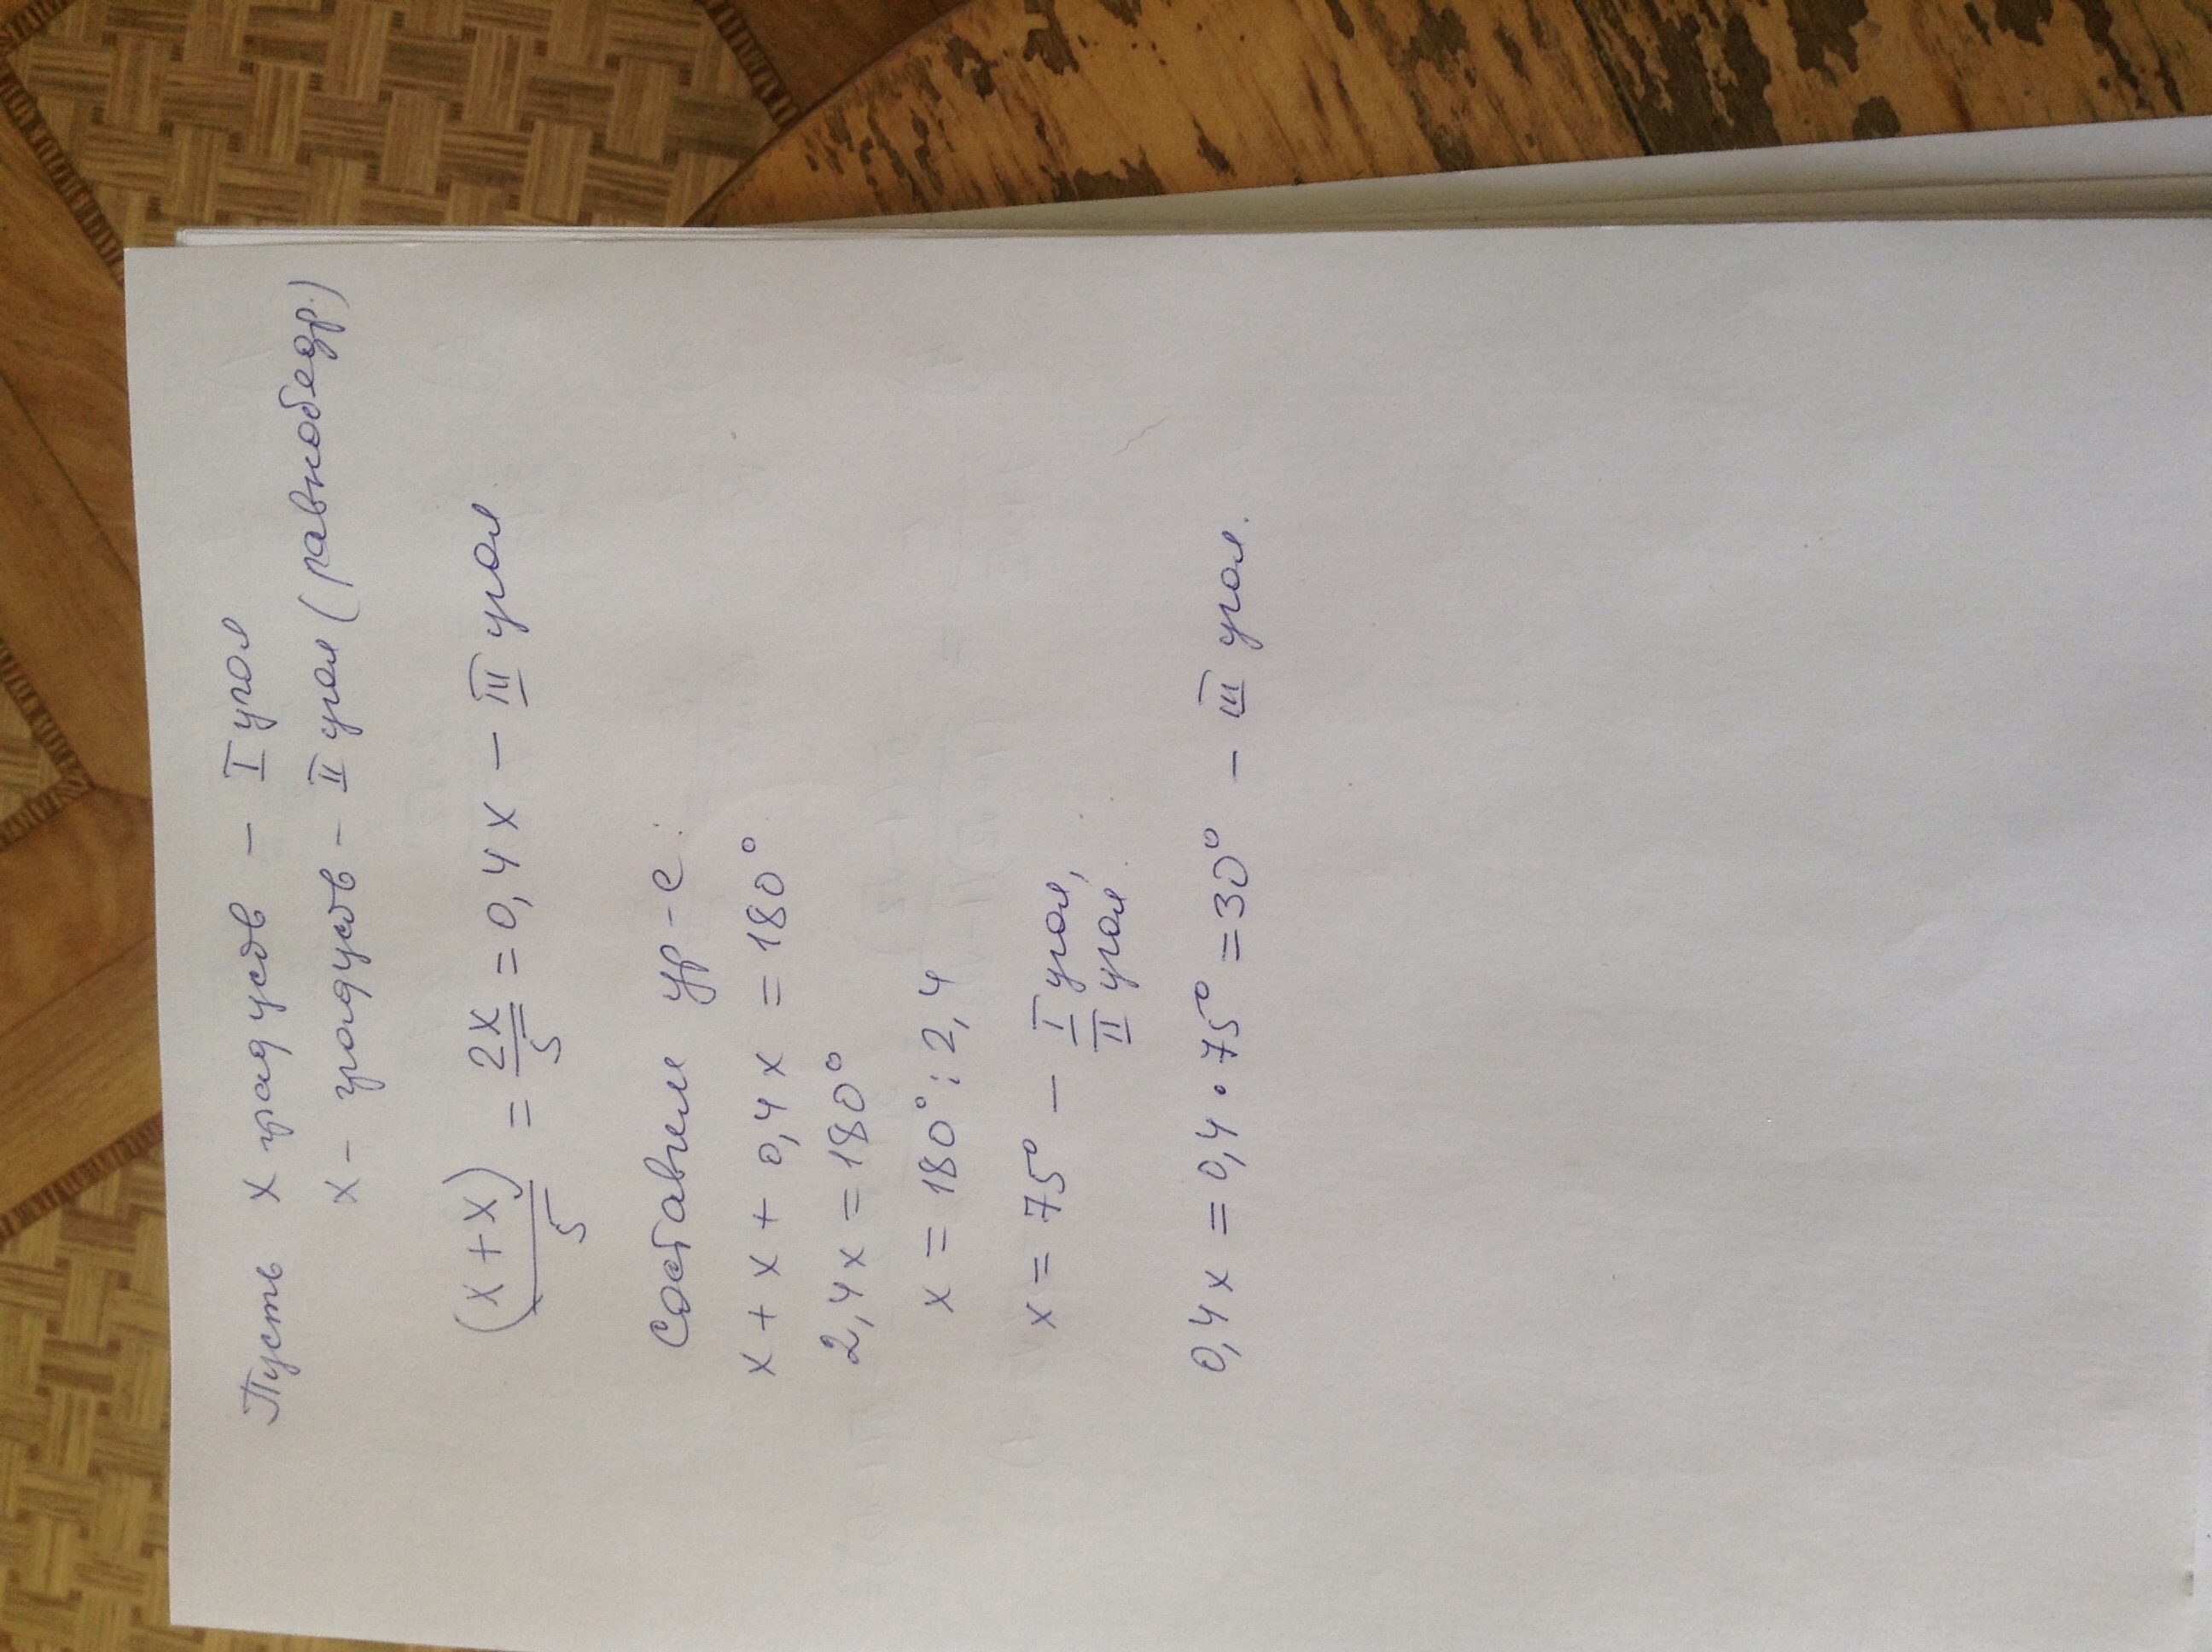 Пусть х градусов – I угол
х – градусов – II угол (равнобедр.)
(х+х)/5 = 2х/5 = 0,4х – III угол
Составим ур-е:
х + х + 0,4х = 180°
2,4х = 180°
х = 180° : 2,4
х = 75° – I угол,
II угол
0,4х = 0,4 • 75° = 30° – III угол.